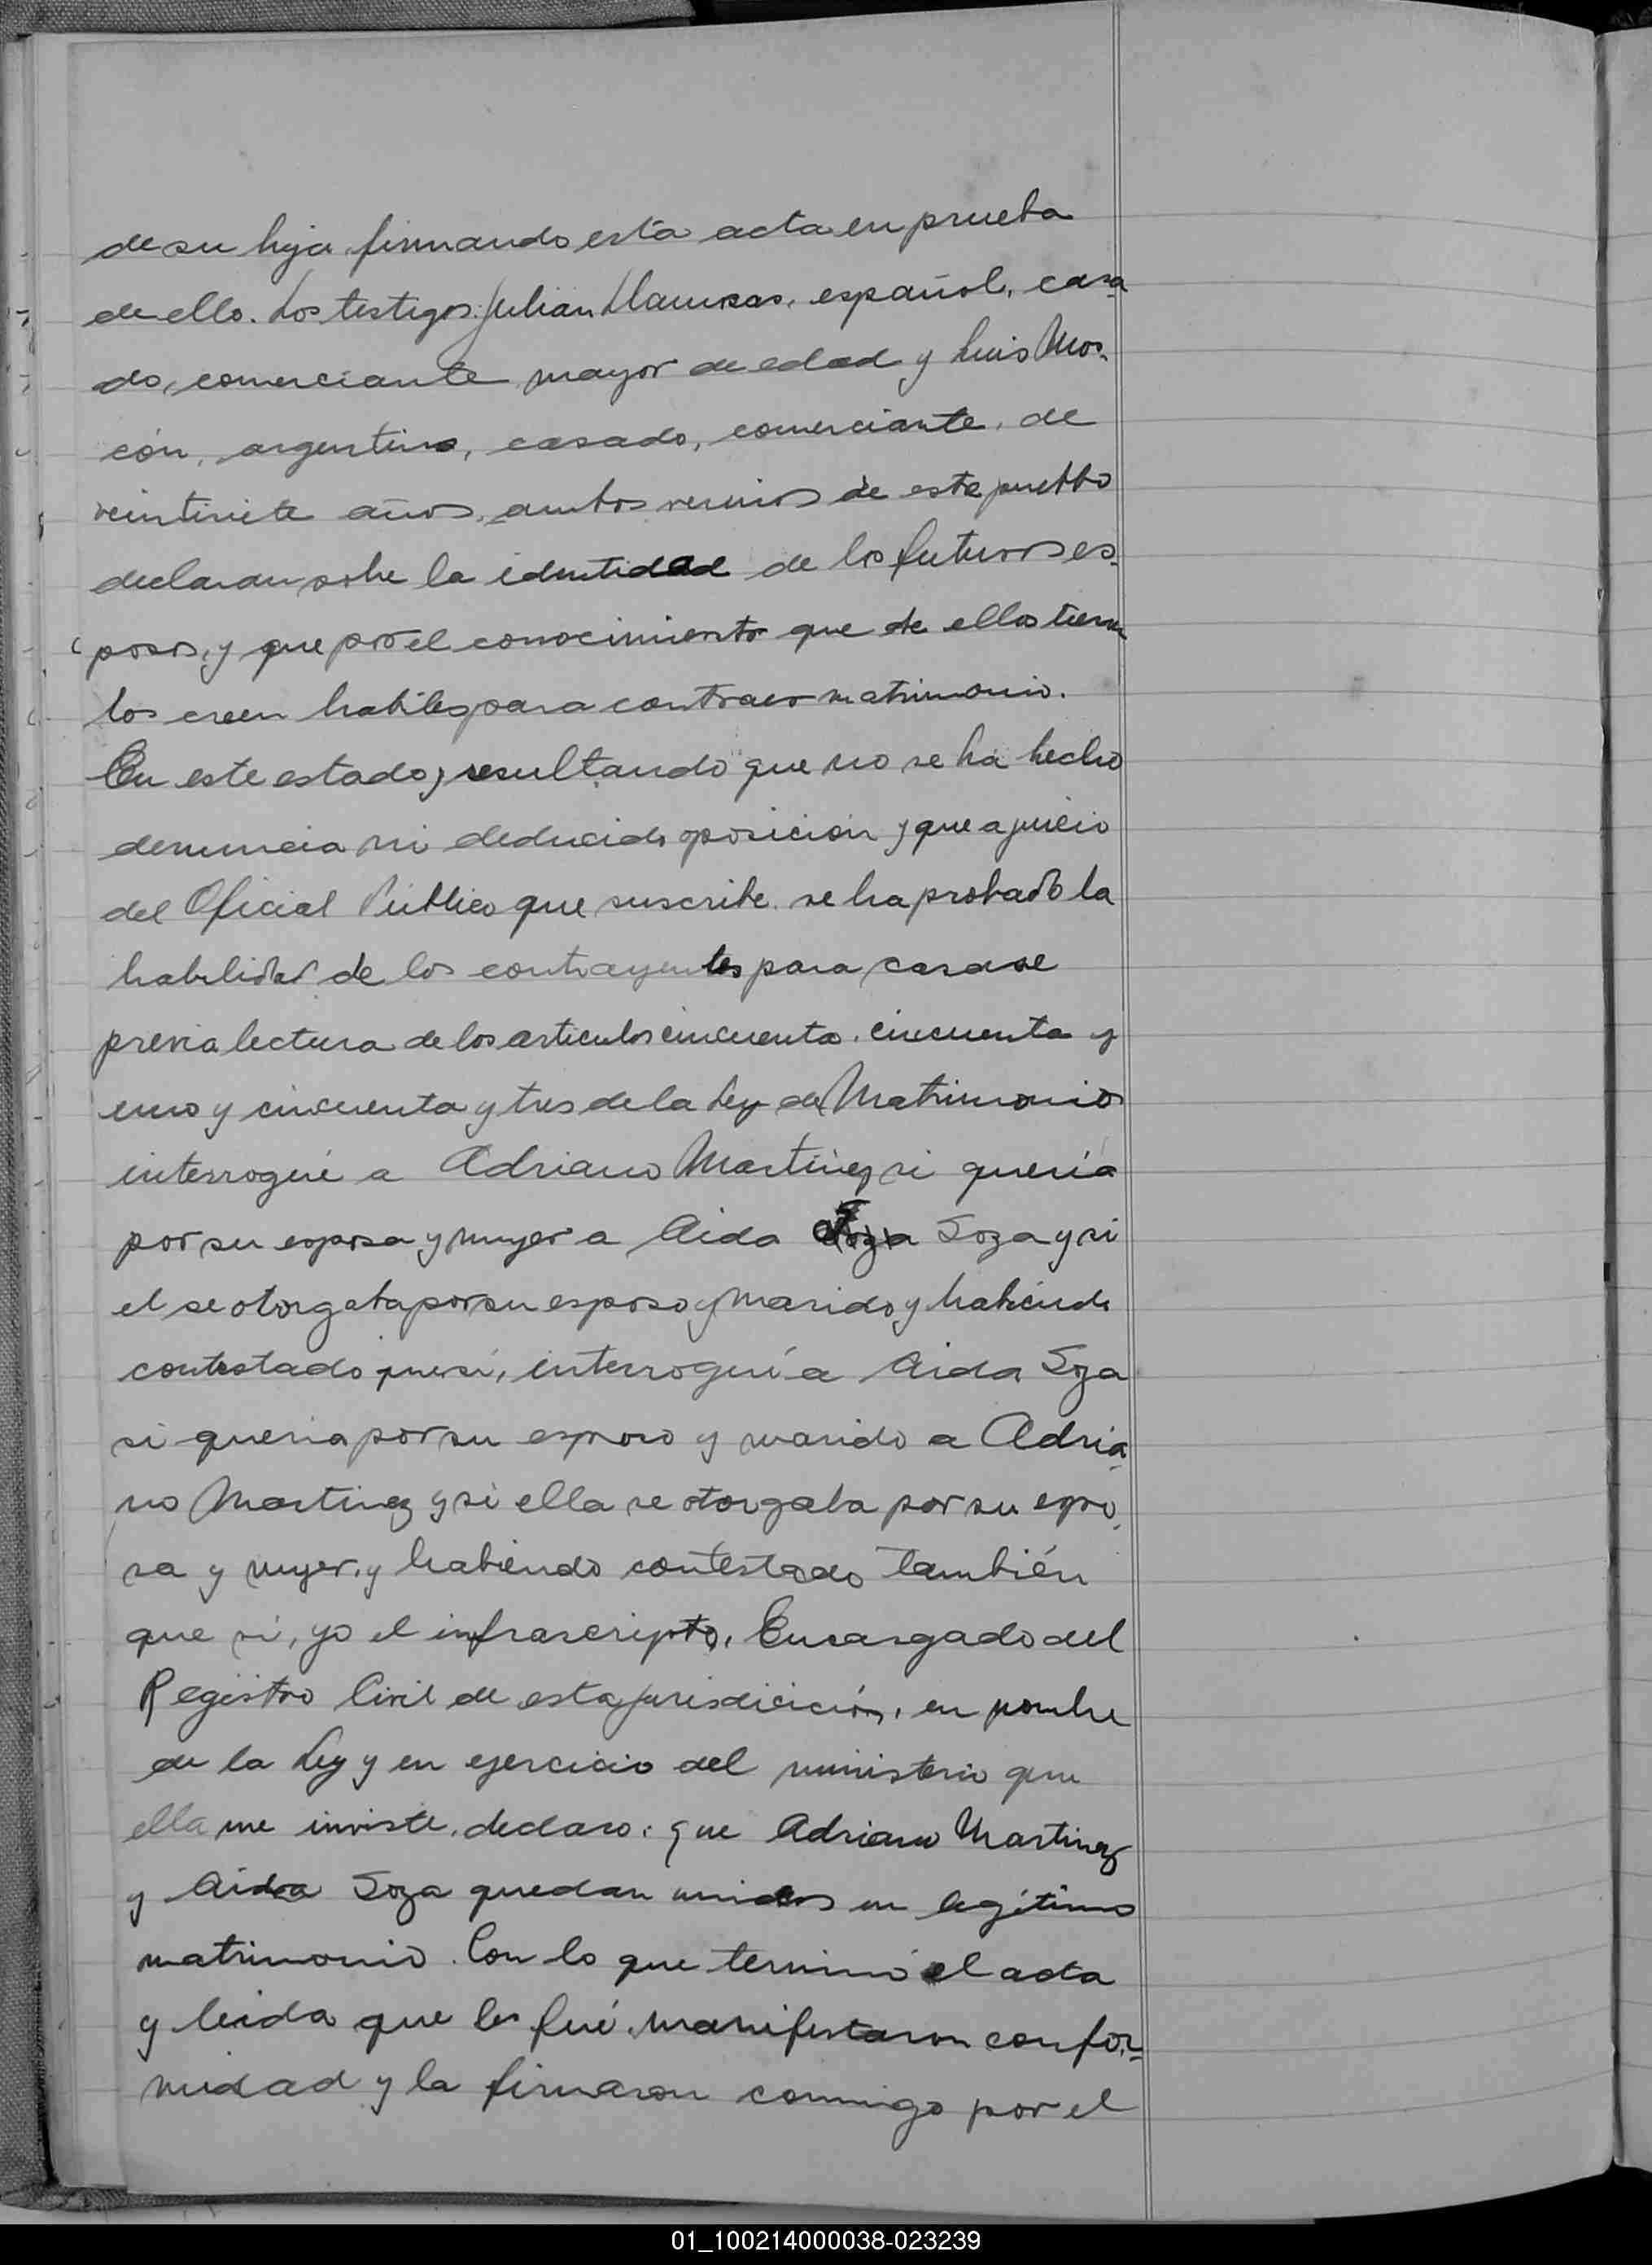 de su hija firmando esta acta en prueba
de ello. Los testigos: Julian Llamasas, español, casa
do, comerciante mayor de edad y Luis Mos-
cón, argentino, casado, comerciante, de
veintisiete años, ambos vecinos de este pueblo
declaran sobre la identidad de los futuros es-
posos, y que por el conocimiento que de ellos tienen
los creen habiles para contraer matrimonio.
En este estado, resultando que no se ha hecho
denuncia ni deducido oposición y que a juicio
del Oficial Público que suscribe se ha probado la
habilidad de los contrayentes para casarse
previa lectura de los articulos cincuenta, cincuenta y
uno y cincuenta y tres de la Ley de Matrimonio
interrogué a Adriano Martinez si quería
por su esposa y mujer a Aida Soza Soza y si
el se otorgaba por su esposo y marido y habiendo
contestado que sí, interrogué a Aida Soza
si queria por su esposo y marido a Adria
no Martinez y si ella se otorgaba por su espo
sa y mujer, y habiendo contestado también
que sí, yo el infrascripto, Encargado del
Registro Civil de esta jurisdicición, en nombre
de la Ley y en ejercicio del ministerio que
ella me inviste, declaro: que Adriano Martinez
y Aida Soza quedan unidos en legítimo
matrimonio. Con lo que terminó el acta
y leida que les fué, manifestaron confor-
midad y la firmaron conmigo por el
01_100214000038-023239